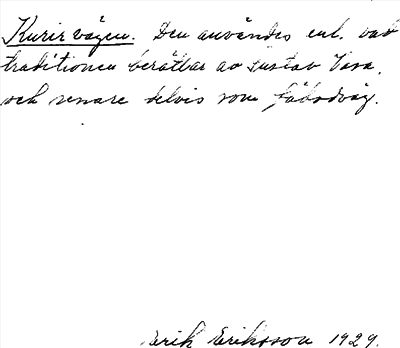 Kurirvägen. Den användes enl. vad
traditionen berättar av Gustav Vasa,
och senare delvis som fäbodväg.
Erik Eriksson 1929.